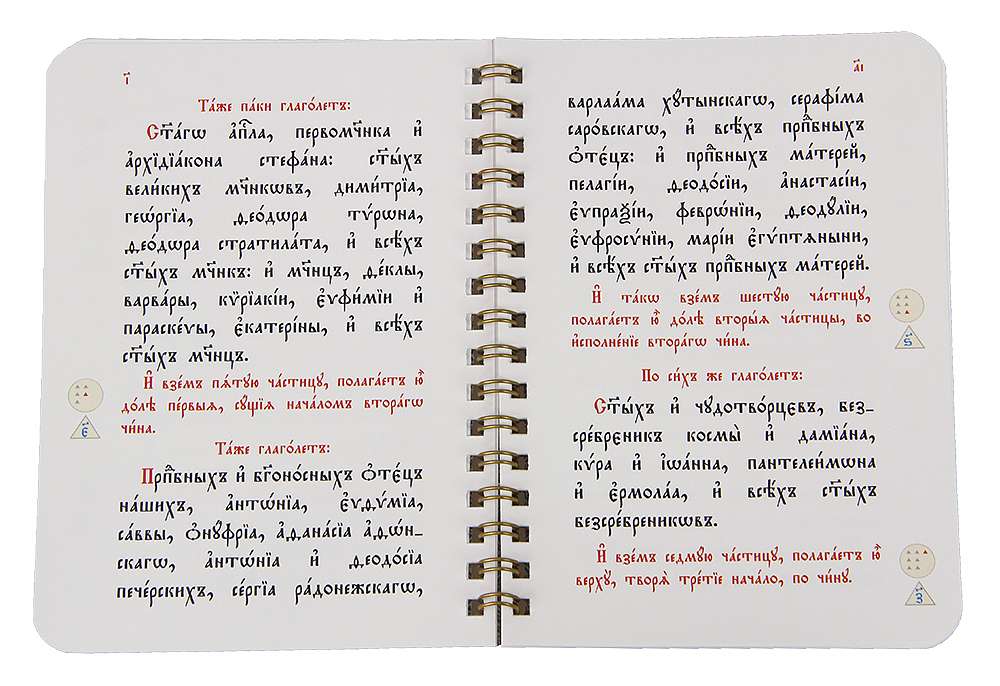 і҃
Та́же па́ки глаго́летъ:
Ст҃а́гѡ а҆пⷭ҇ла, первомч҃нка и҆
а҆рхїдїа́кона стефа́на: ст҃ы́хъ
вели́кихъ мч҃нкѡвъ, дими́трїа,
геѡ́ргїа, ѳео́дѡра ту́рѡна,
ѳео́дѡра стратила́та, и҆ всѣ́хъ
ст҃ы́хъ мч҃нкъ: и҆ мч҃нцъ, ѳе́клы,
варва́ры, кѷрїакі́и, є҆ѵфи́мїи и҆
параске́ѵы, є҆катері́ны, и҆ всѣ́хъ
ст҃ы́хъ мч҃нцъ.
И҆ взе́мъ пѧ́тую части́цу, полага́етъ ю҆̀
до́лѣ пе́рвыѧ, су́щїѧ нача́ломъ втора́гѡ
чи́на.
є҃
Та́же глаго́летъ:
Прпⷣбныхъ и҆ бг҃оно́сныхъ ѻ҆тє́цъ
на́шихъ, а҆нтѡ́нїа, є҆ѵѳѵ́мїа,
са́ввы, ѻ҆ну́фрїа, а҆ѳана́сїа а҆ѳѡ́н_
скагѡ, а҆нтѡ́нїа и҆ ѳеодо́сїа
пече́рскихъ, се́ргїа ра́донежскагѡ,
а҃і
варлаа́ма хꙋты́нскагѡ, серафі́ма
саро́вскагѡ, и҆ всѣ́хъ прпⷣбныхъ
ѻ҆тє́цъ: и҆ прпⷣбныхъ ма́терей,
пелагі́и, ѳеодо́сїи, а҆настасі́и,
є҆ѵпраѯі́и, февро́нїи, ѳеодꙋ́лїи,
є҆ѵфросѵ́нїи, марі́и є҆гѵ́птѧныни,
и҆ всѣ́хъ ст҃ы́хъ прпⷣбныхъ ма́терей.
И҆ та́кѡ взе́мъ шесту́ю ча́стицу,
полага́етъ ю҆̀ до́лѣ вторы́ѧ ча́стицы, во
и҆сполне́нїе втора́гѡ чи́на.
ѕ҃
По си́хъ же глаго́летъ:
Ст҃ы́хъ и҆ чудотво́рцєвъ, без_
сре́бреникъ космы̀ и҆ дамїа́на,
кѵ́ра и҆ і҆ѡа́нна, пантелеи́мѡна
и҆ є҆рмола́а, и҆ всѣ́хъ ст҃ы́хъ
безсре́бреникѡвъ.
И҆ взе́мъ седму́ю ча́стицу, полага́етъ ю҆̀
верху̀, творѧ̀ тре́тїе нача́ло, по чи́ну.
з҃